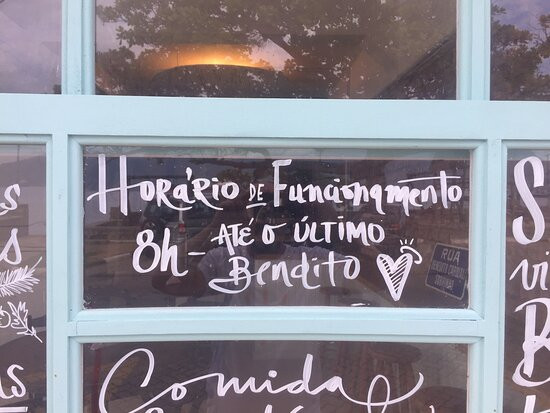 Horário de Funcionamento
8h - Até o Último
Bendito
RUA
Comida